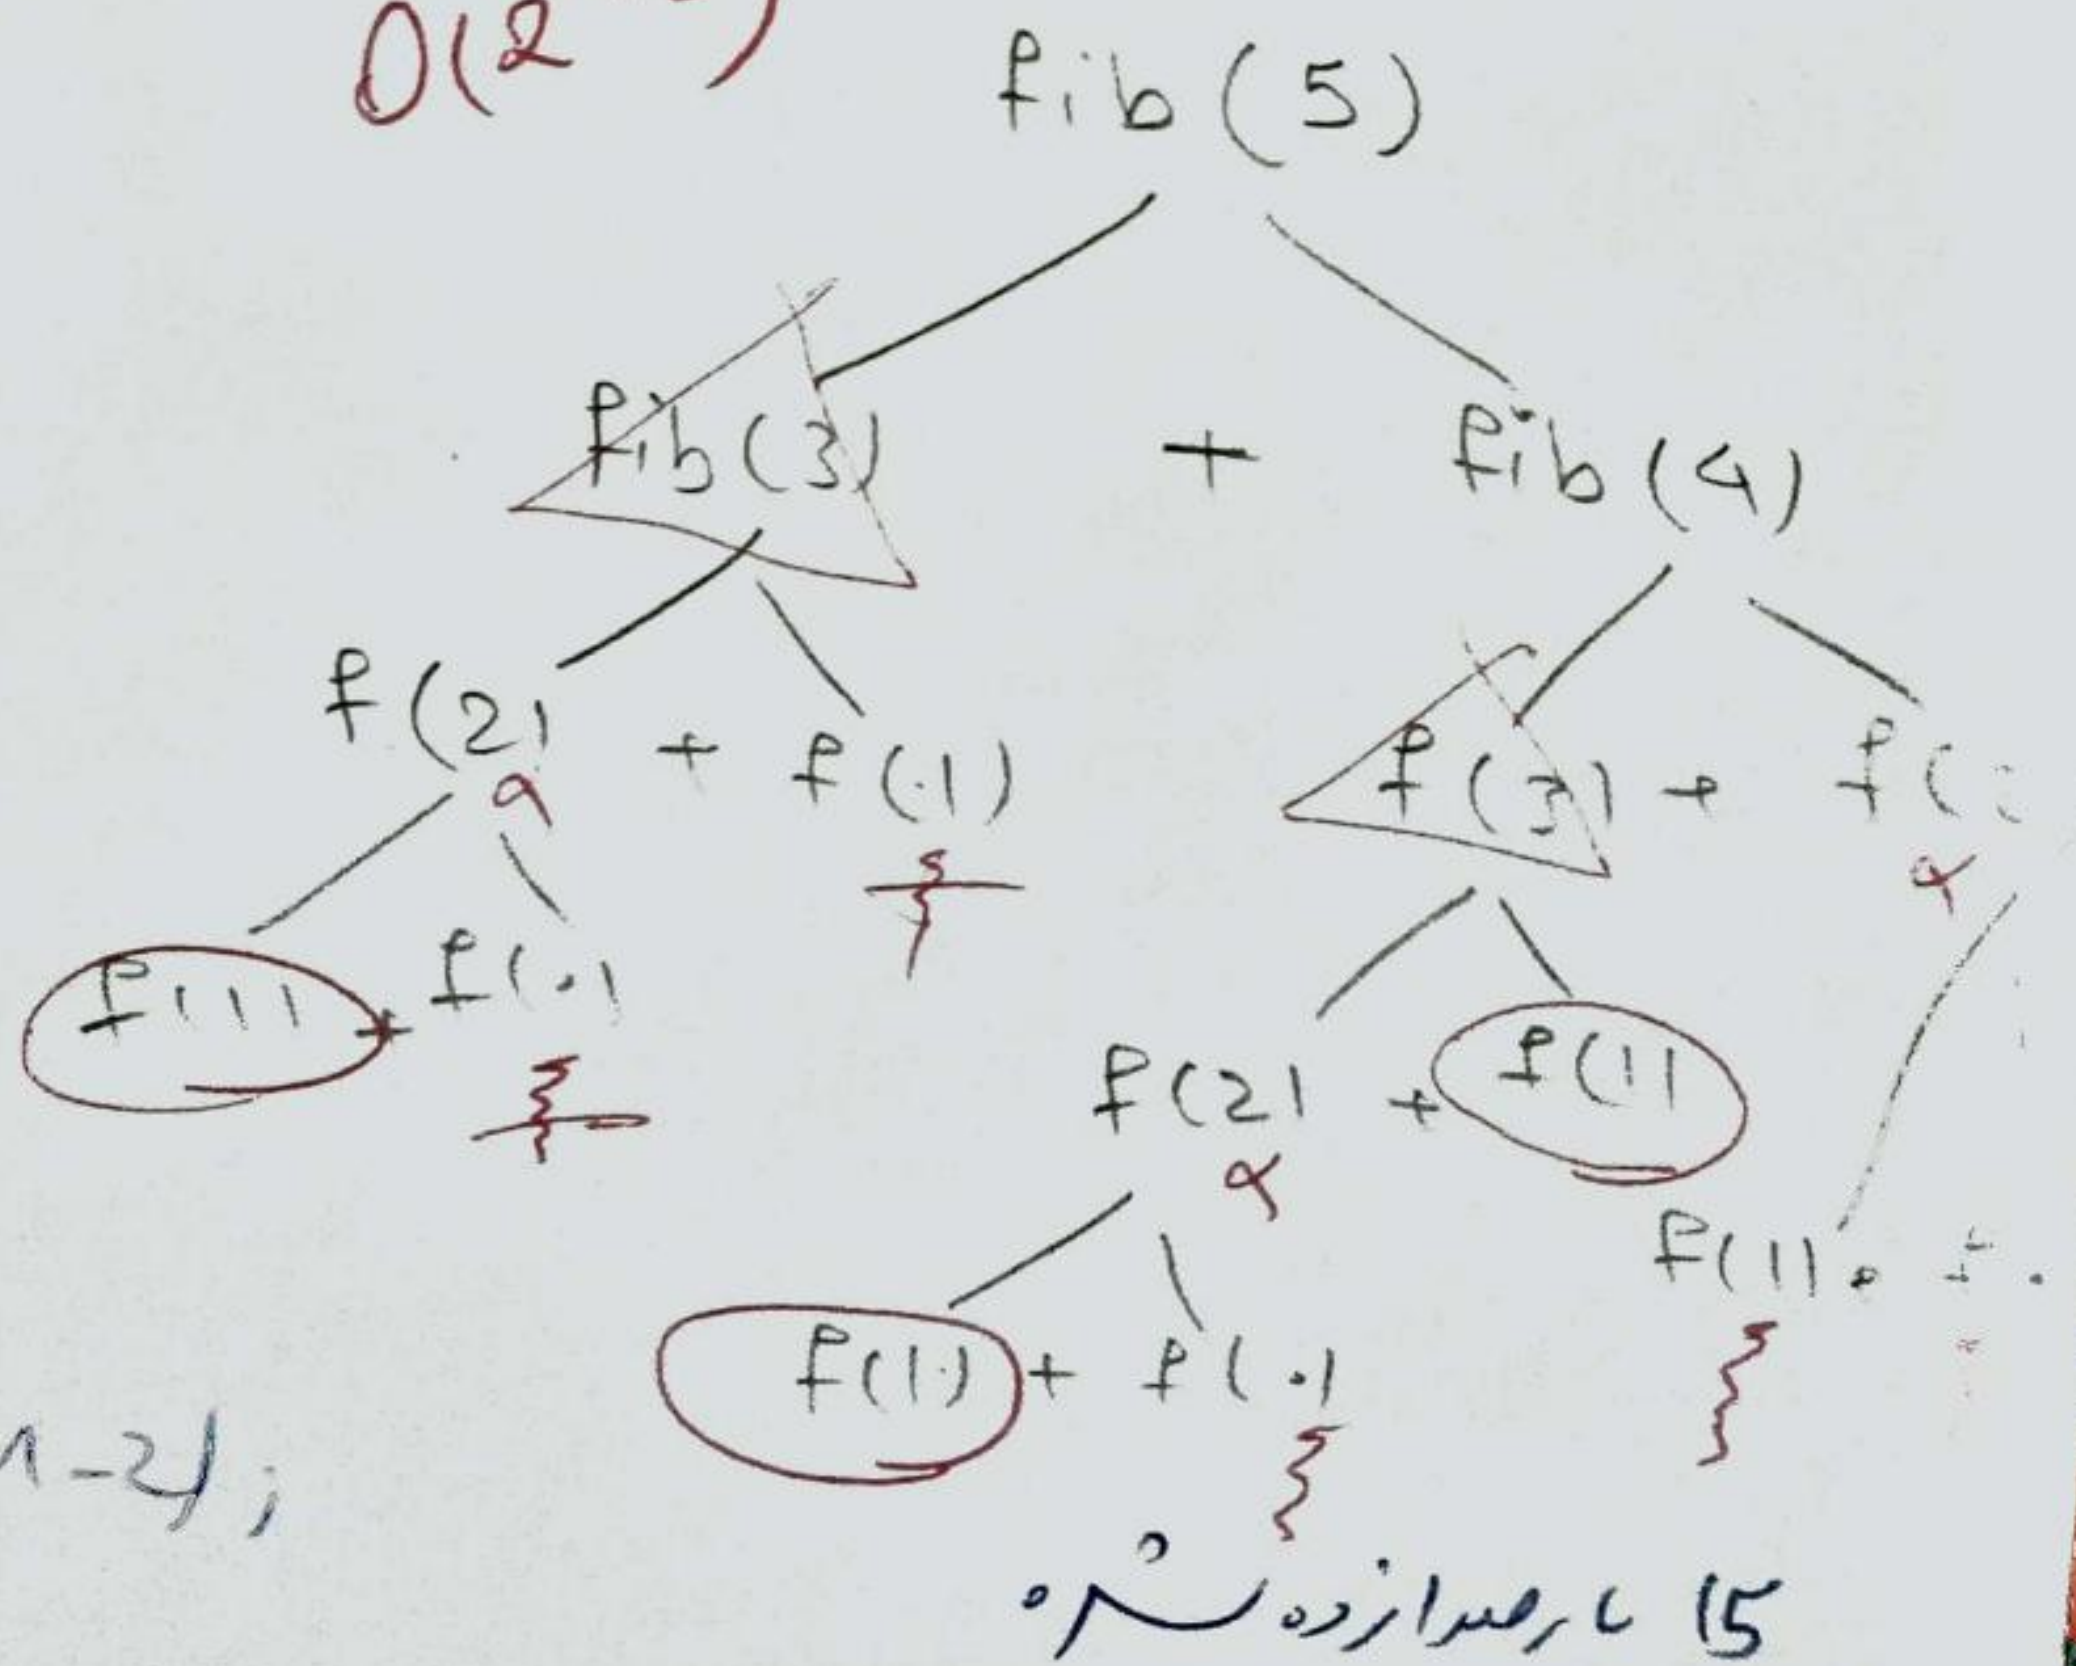 O(2
fib(5)
fib(3) + fib(4)
f(2) + f(1)
f(3) + f(
f(1) + f(0)
f(2) + f(1)
f(1)
f(1) + f(0)
n-2);
15 بار صدا زده شده